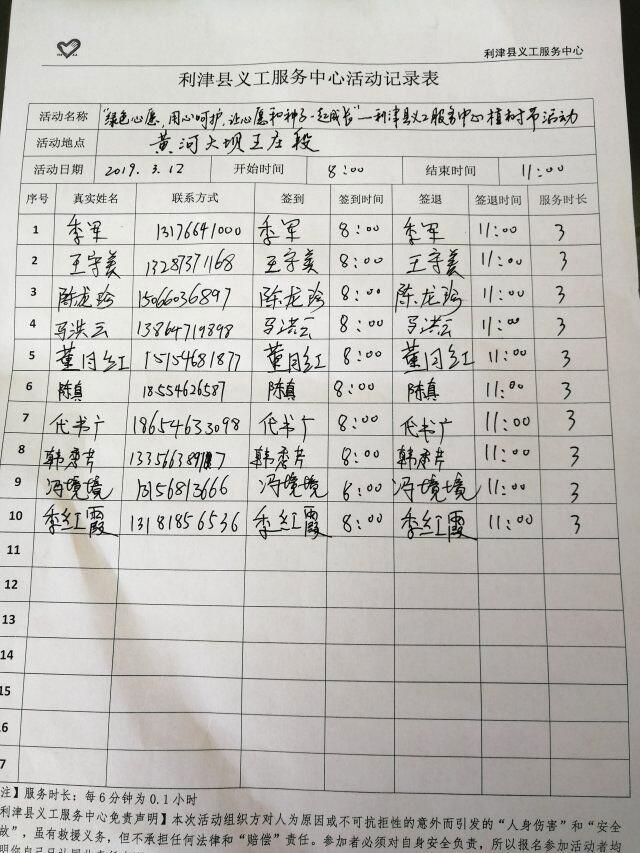 利津县义工服务中心
利津县义工服务中心活动记录表
活动名称 "绿色心愿,用心呵护,让心愿和种子一起成长"—利津县义工服务中心植树节活动
活动地点 黄河大坝王庄段
活动日期 2019.3.12 开始时间 8:00 结束时间 11:00
序号 真实姓名 联系方式 签到 签到时间 签退 签退时间 服务时长
1 季军 13176641000 季军 8:00 季军 11:00 3
2 王守美 13287371168 王守美 8:00 王守美 11:00 3
3 陈龙珍 15066036897 陈龙珍 8:00 陈龙珍 11:00 3
4 马洪云 13864719898 马洪云 8:00 马洪云 11:00 3
5 董月红 15154681877 董月红 8:00 董月红 11:00 3
6 陈真 18554626587 陈真 8:00 陈真 11:00 3
7 代书广 18654633098 代书广 8:00 代书广 11:00 3
8 韩秀芹 韩秀芹 8:00 韩秀芹 11:00 3
9 冯境境 13156813666 冯境境 8:00 冯境境 11:00 3
10 季红霞 13181856536 季红霞 8:00 季红霞 11:00 3
11
12
13
14
15
6
7
注】服务时长:每6分钟为0.1小时
利津县义工服务中心免责声明】本次活动组织方对人为原因或不可抗拒性的意外而引发的"人身伤害"和"安全
故",虽有救援义务,但不承担任何法律和"赔偿"责任。参加者必须对自身安全负责,所以报名参加活动者均